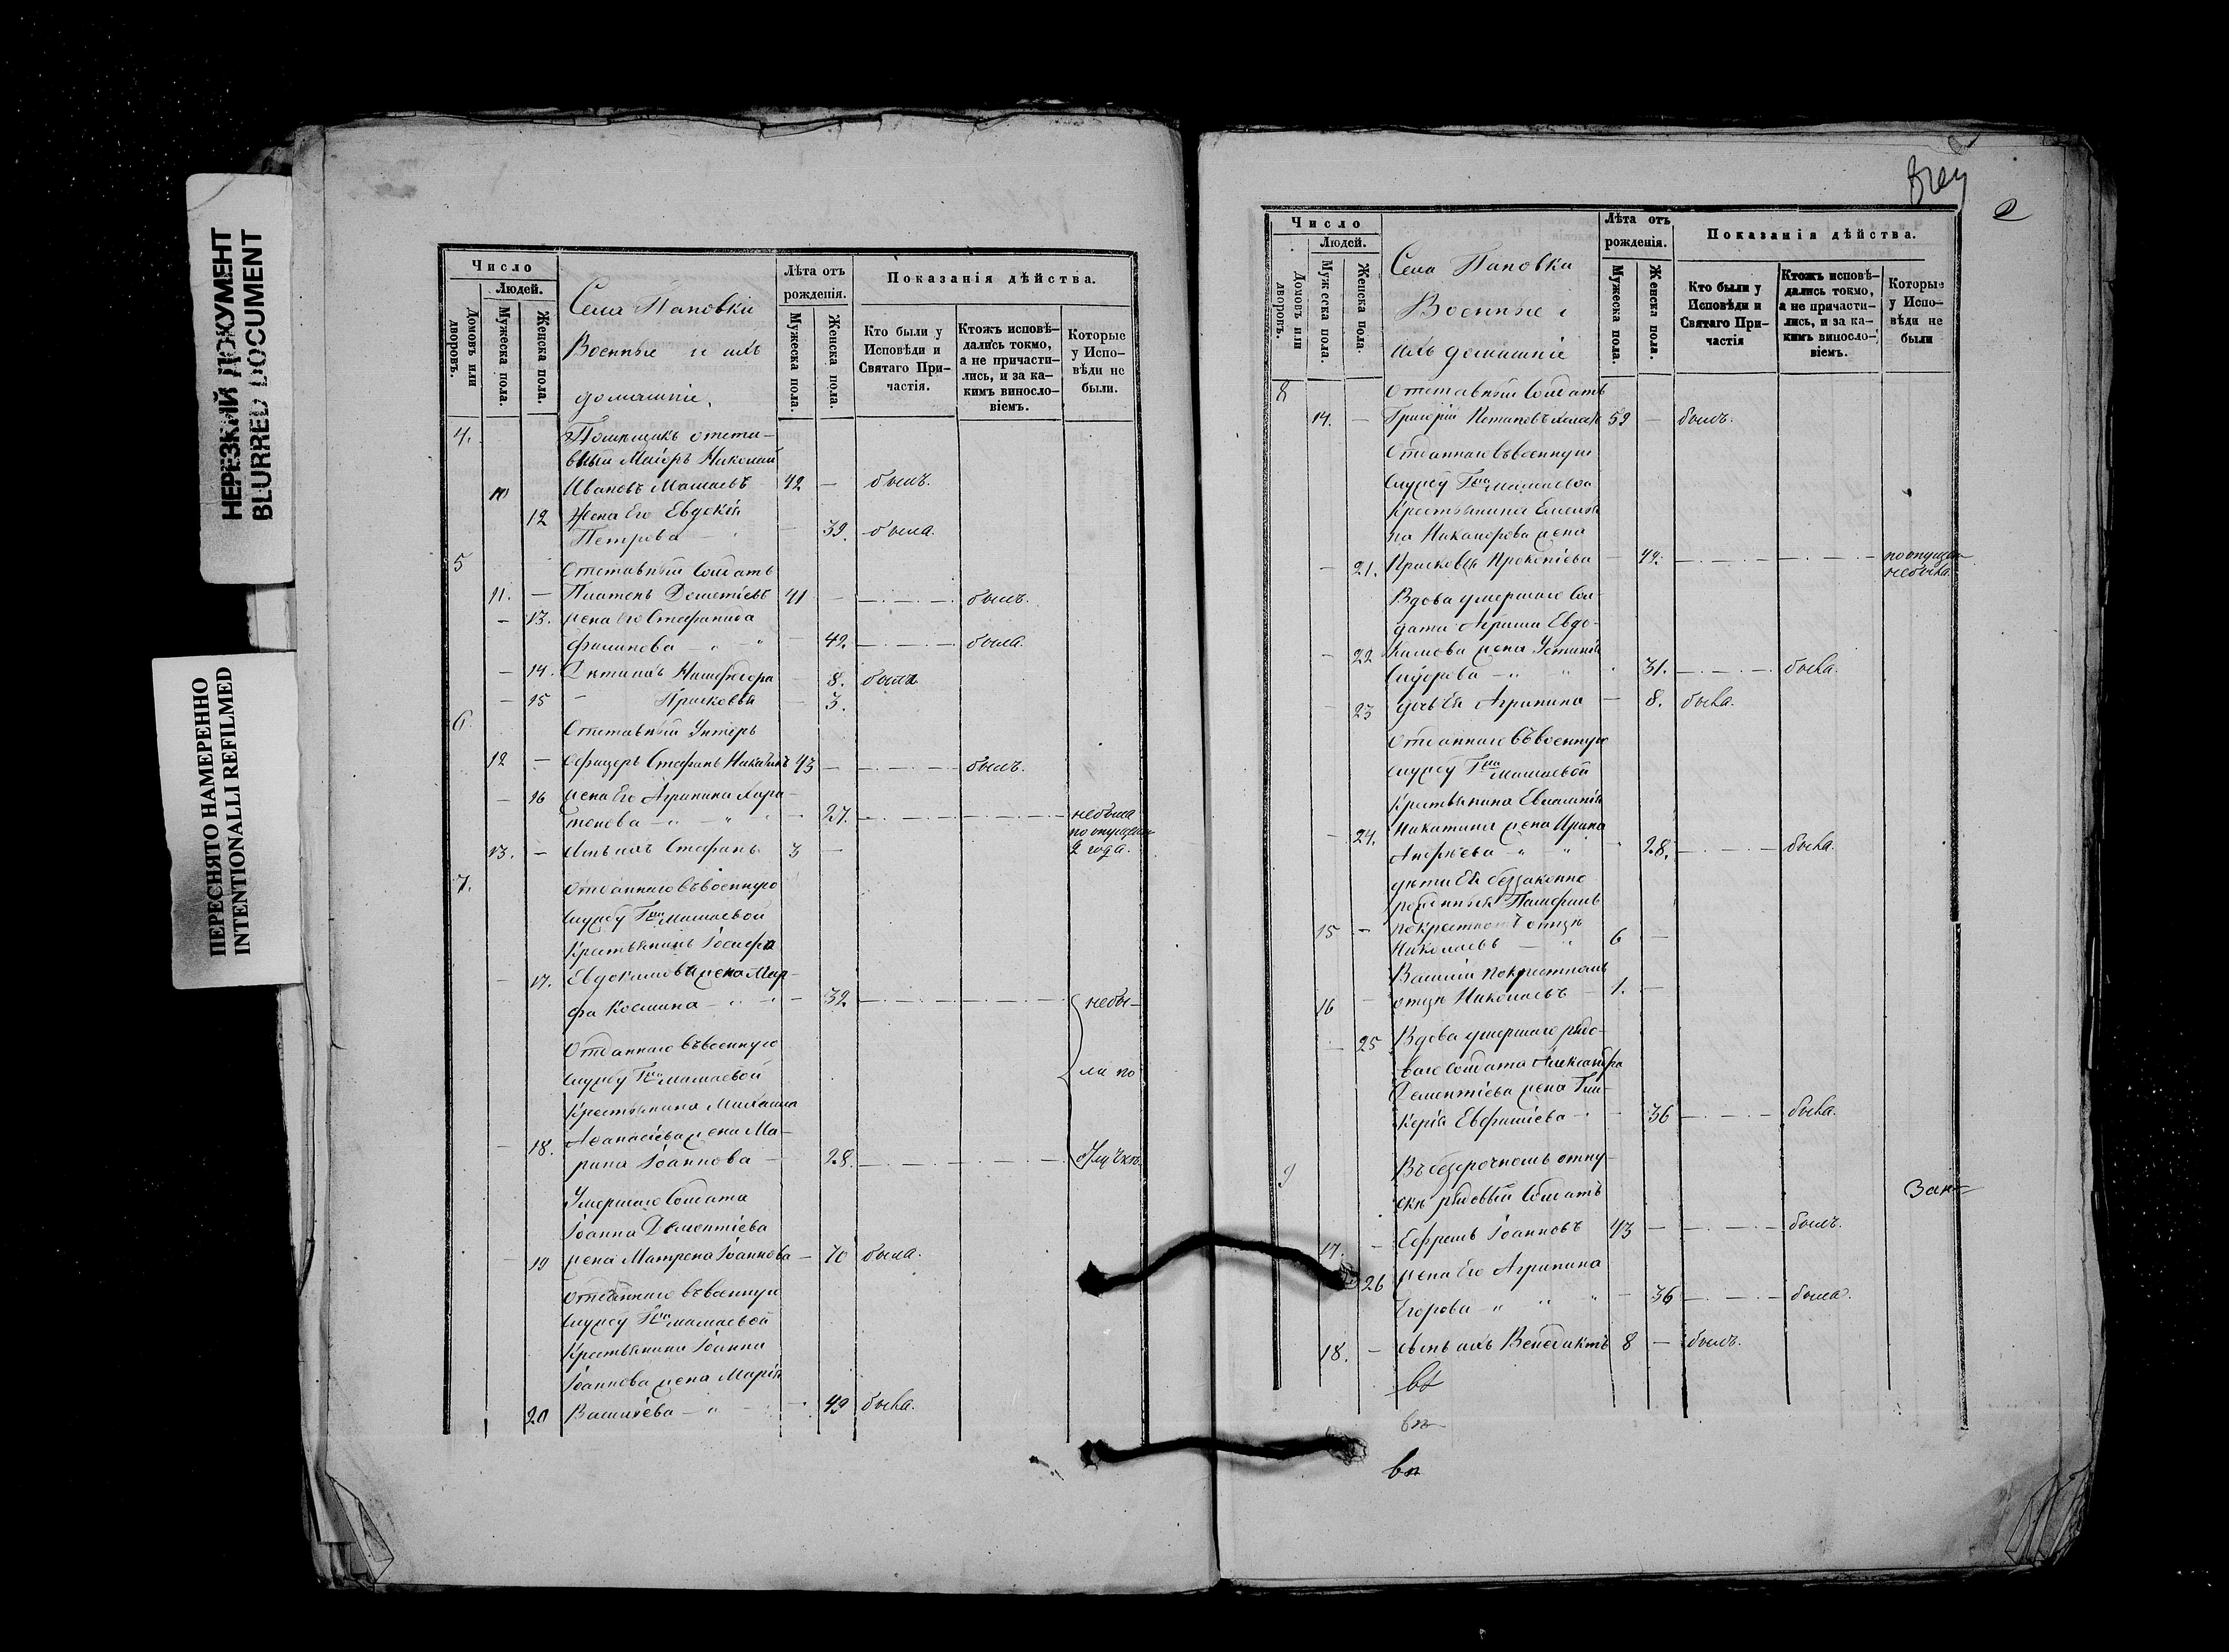 НЕРЕЗКИЙ ДОКУМЕНТ
BLURRED DOCUMENT
ПЕРЕСНЯТО НАМЕРЕННО
INTENTIONALLI REFILMED
Число
Людей.
Домовъ или дворовъ.
Мужеска пола.
Женска пола.
Села Паповки
Военные и ихъ
домашніе.
Лѣта отъ рожденія.
Мужеска пола.
Женска пола.
Показанія дѣйства.
Кто были у Исповѣди и Святаго Причастія.
Ктожъ исповѣдались токмо, а не причастились, и за какимъ винословіемъ.
Которые у Исповѣди не были.
4. Помѣщикъ отста-
вный Маіоръ Николай
10 Ивановъ Мамаевъ 42 — былъ.
12 Жена его Евдокія
Петрова — 39. была.
5 Отставный Солдатъ
11. — Платонъ Дементіевъ 41 — былъ.
— 13. жена его Стефанида
Филипова — 42. была.
— 14. Дѣти ихъ 8. была
— 15 Прасковья — 3.
6. Отставный Унтеръ
12 — Офицеръ Стефанъ Никитинъ 43 — былъ.
— 16 жена его Агрипина Хари-
тонова — 27. небыла
по опущен.
13. — сынъ ихъ Стефанъ 3 — 2 года.
7. Отданнаго въ военную
службу Гжи Мамаевой
Крестьянина Іосифа
— 17. Евдокимова жена Мар-
фа Космина — 32. небы-
Отданнаго въ военную
службу Гжи Мамаевой ли по
Крестьянина Михаила
— 18. Афанасіева жена Ма-
рина Іоаннова — 28.
Умершаго Солдата
Іоанна Дементіева
— 19 жена Матрена Іоаннова — 70 была.
Отданнаго въ военную
службу Гжи Мамаевой
Крестьянина Іоанна
Іоаннова жена Марія
20 Васильева — 49 была.
2
Число
Людей.
Домовъ или дворовъ.
Мужеска пола.
Женска пола.
Села Паповки
Военные и
ихъ домашніе
Лѣта отъ рожденія.
Мужеска пола.
Женска пола.
Показанія дѣйства.
Кто были у Исповѣди и Святаго Причастія
Ктожъ исповѣдались токмо, а не причастились, и за какимъ винословіемъ.
Которые у Исповѣди не были
8 Отставный Солдатъ
14. — Григорій Потаповъ 59 — былъ.
Отданнаго въ военную
службу Гжи Мамаевой
Крестьянина
на Никанорова жена
— 21. Прасковья Прокопіева — 42. по опущен.
небыла.
Вдова умершаго Сол-
дата Евдо-
— 22 кимова жена Устинія
Сидорова — 31. была.
— 23 дочь ея Агрипина — 8. была.
Отданнаго въ военную
службу Гжи Мамаевой
Крестьянина Евлампія
— 24. Никитина жена Ирина
Андреева 28. была.
дѣти ея беззаконно
рожденныя Памфилъ
15 — по крестномъ отцѣ
Николаевъ — 6 —
Василій по крестномъ
16 — отцѣ Николаевъ — 1. —
— 25 Вдова умершаго рядо-
ваго Солдата Александра
Дементіева жена Гли-
керія Евфиміева — 36 была.
9 Въ безсрочномъ отпу-
скѣ рядовый Солдатъ
17. — Ефремъ Іоанновъ 43 — былъ.
26 жена его Агрипина
Егорова — 36 была.
18. — сынъ ихъ Венедиктъ 8 — былъ.